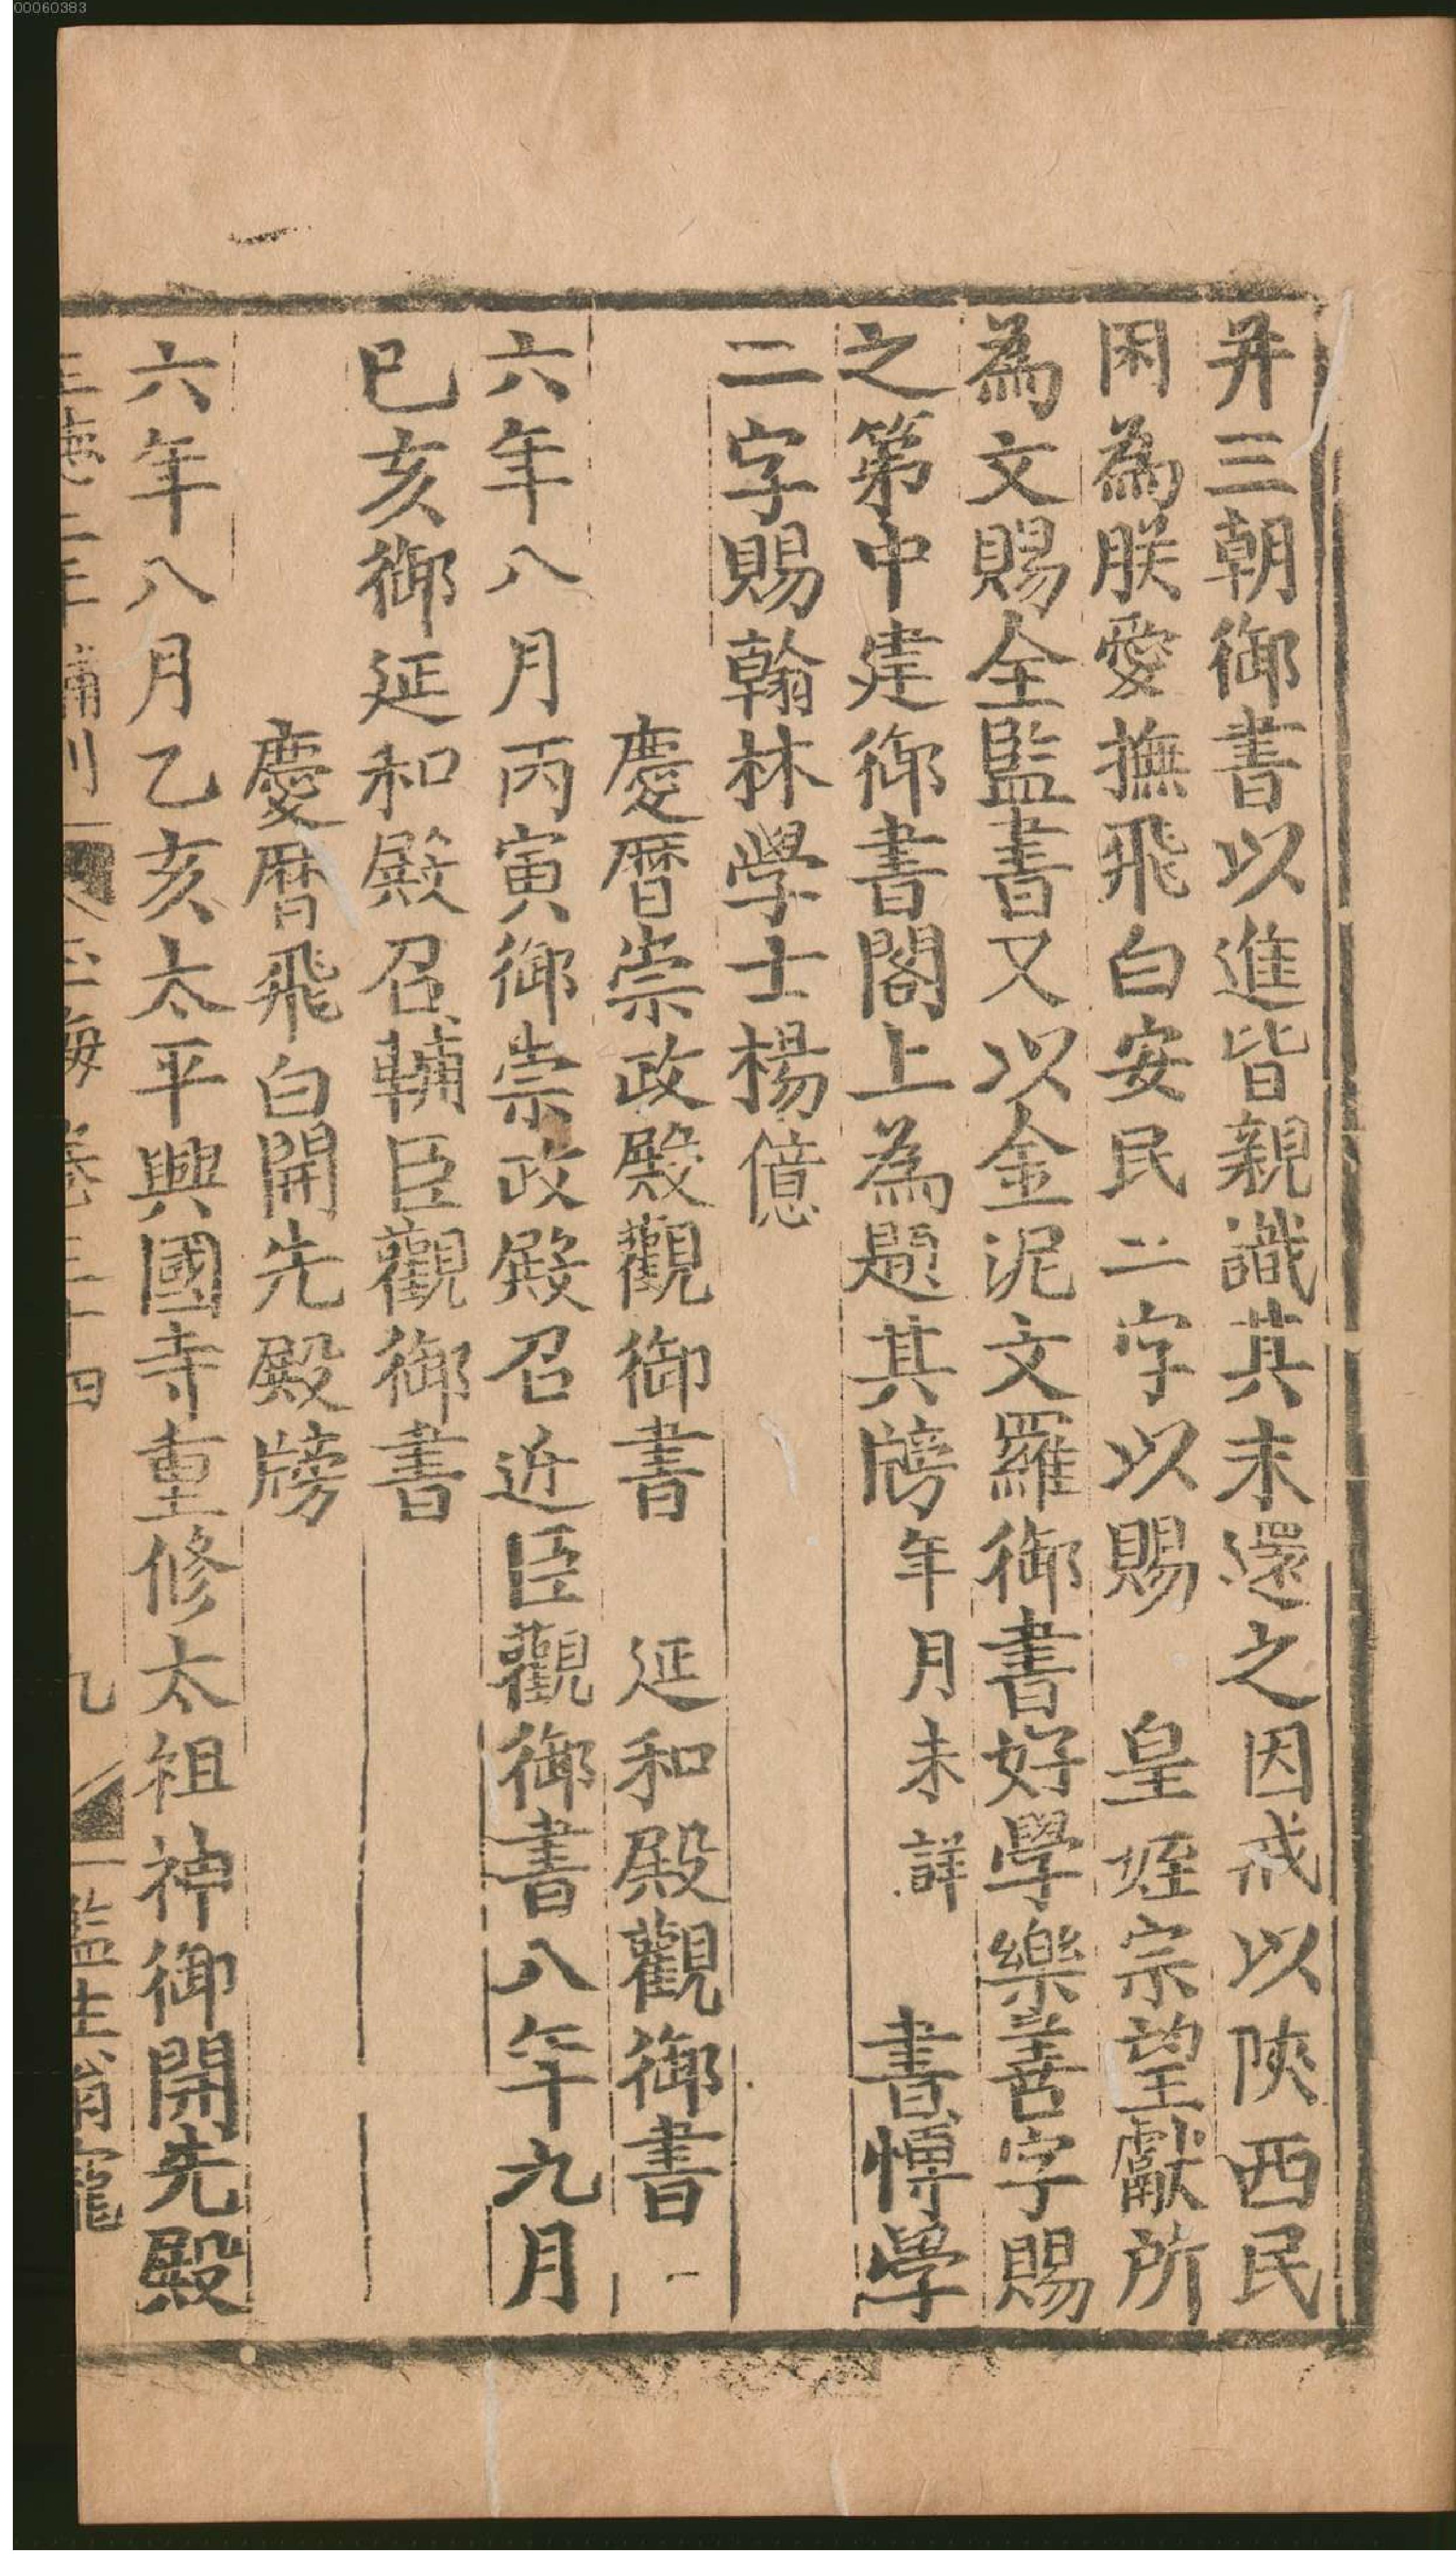 00060383
并三朝御書以進皆親識其末還之因戒以陝西民
困為朕愛撫飛白安民二字以賜　皇姪宗望獻所
為文賜全監書又以金泥文羅御書好學樂善字賜
之第中建御書閣上為題其牓年月未詳　書博學
二字賜翰林學士楊億
慶曆崇政殿觀御書　延和殿觀御書
六年八月丙寅御崇政殿召近臣觀御書八年九月
巳亥御延和殿召輔臣觀御書
慶曆飛白開先殿牓
六年八月乙亥太平興國寺重修太祖神御開先殿
正德二年補刊　玉海卷三十四　九　監生